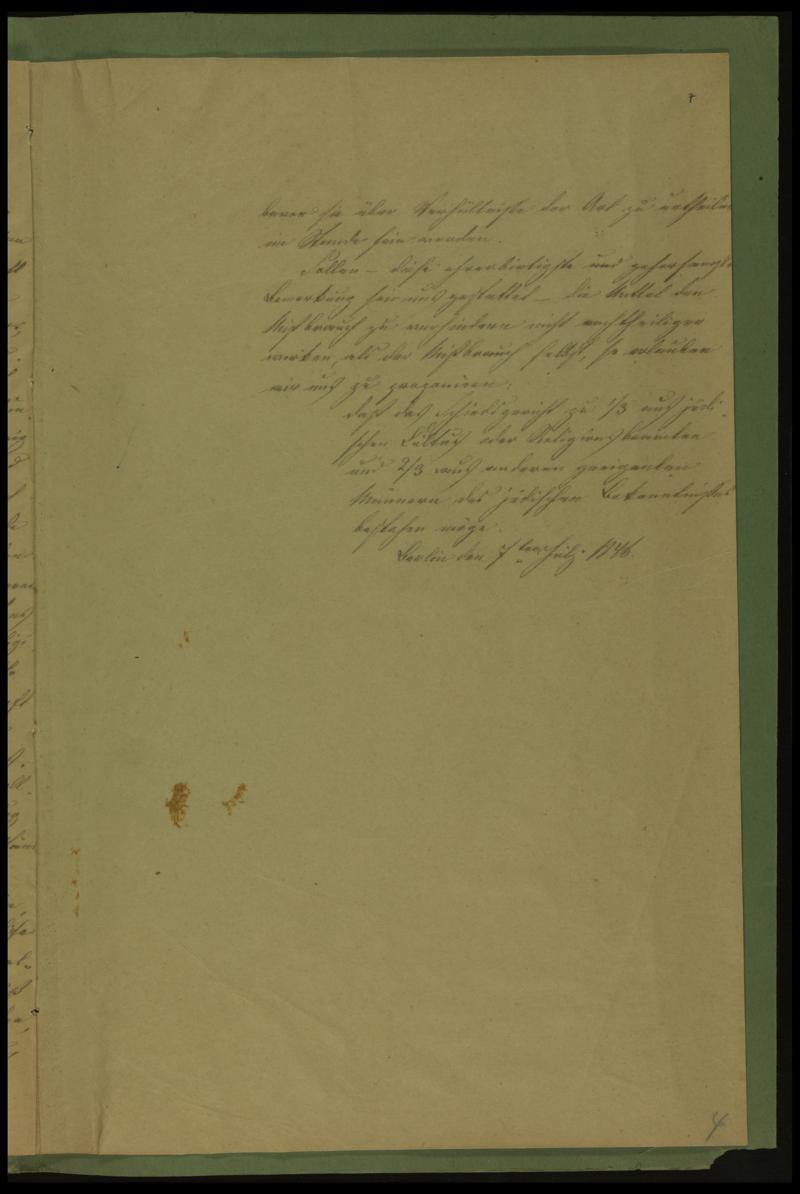 7
bevor sie über Verhältniße der Art zu urtheilen
im Stande sein werden.
Sollen – diese ehrerbietigste und gehorsamste
Bemerkung sei uns gestattet – die Mittel den
Mißbrauch zu verhindern nicht nachtheiliger
wirken, als der Mißbrauch selbst, so erlauben
wir uns zu proponiren,
daß das Schiedsgericht zu 1/3 aus jüdi-
schen Cultus oder Religionsbeamten
und 2/3 aus anderen geeigneten
Männern des jüdischen Bekenntnißes
bestehen möge.
Berlin den 7ten 1846.
4